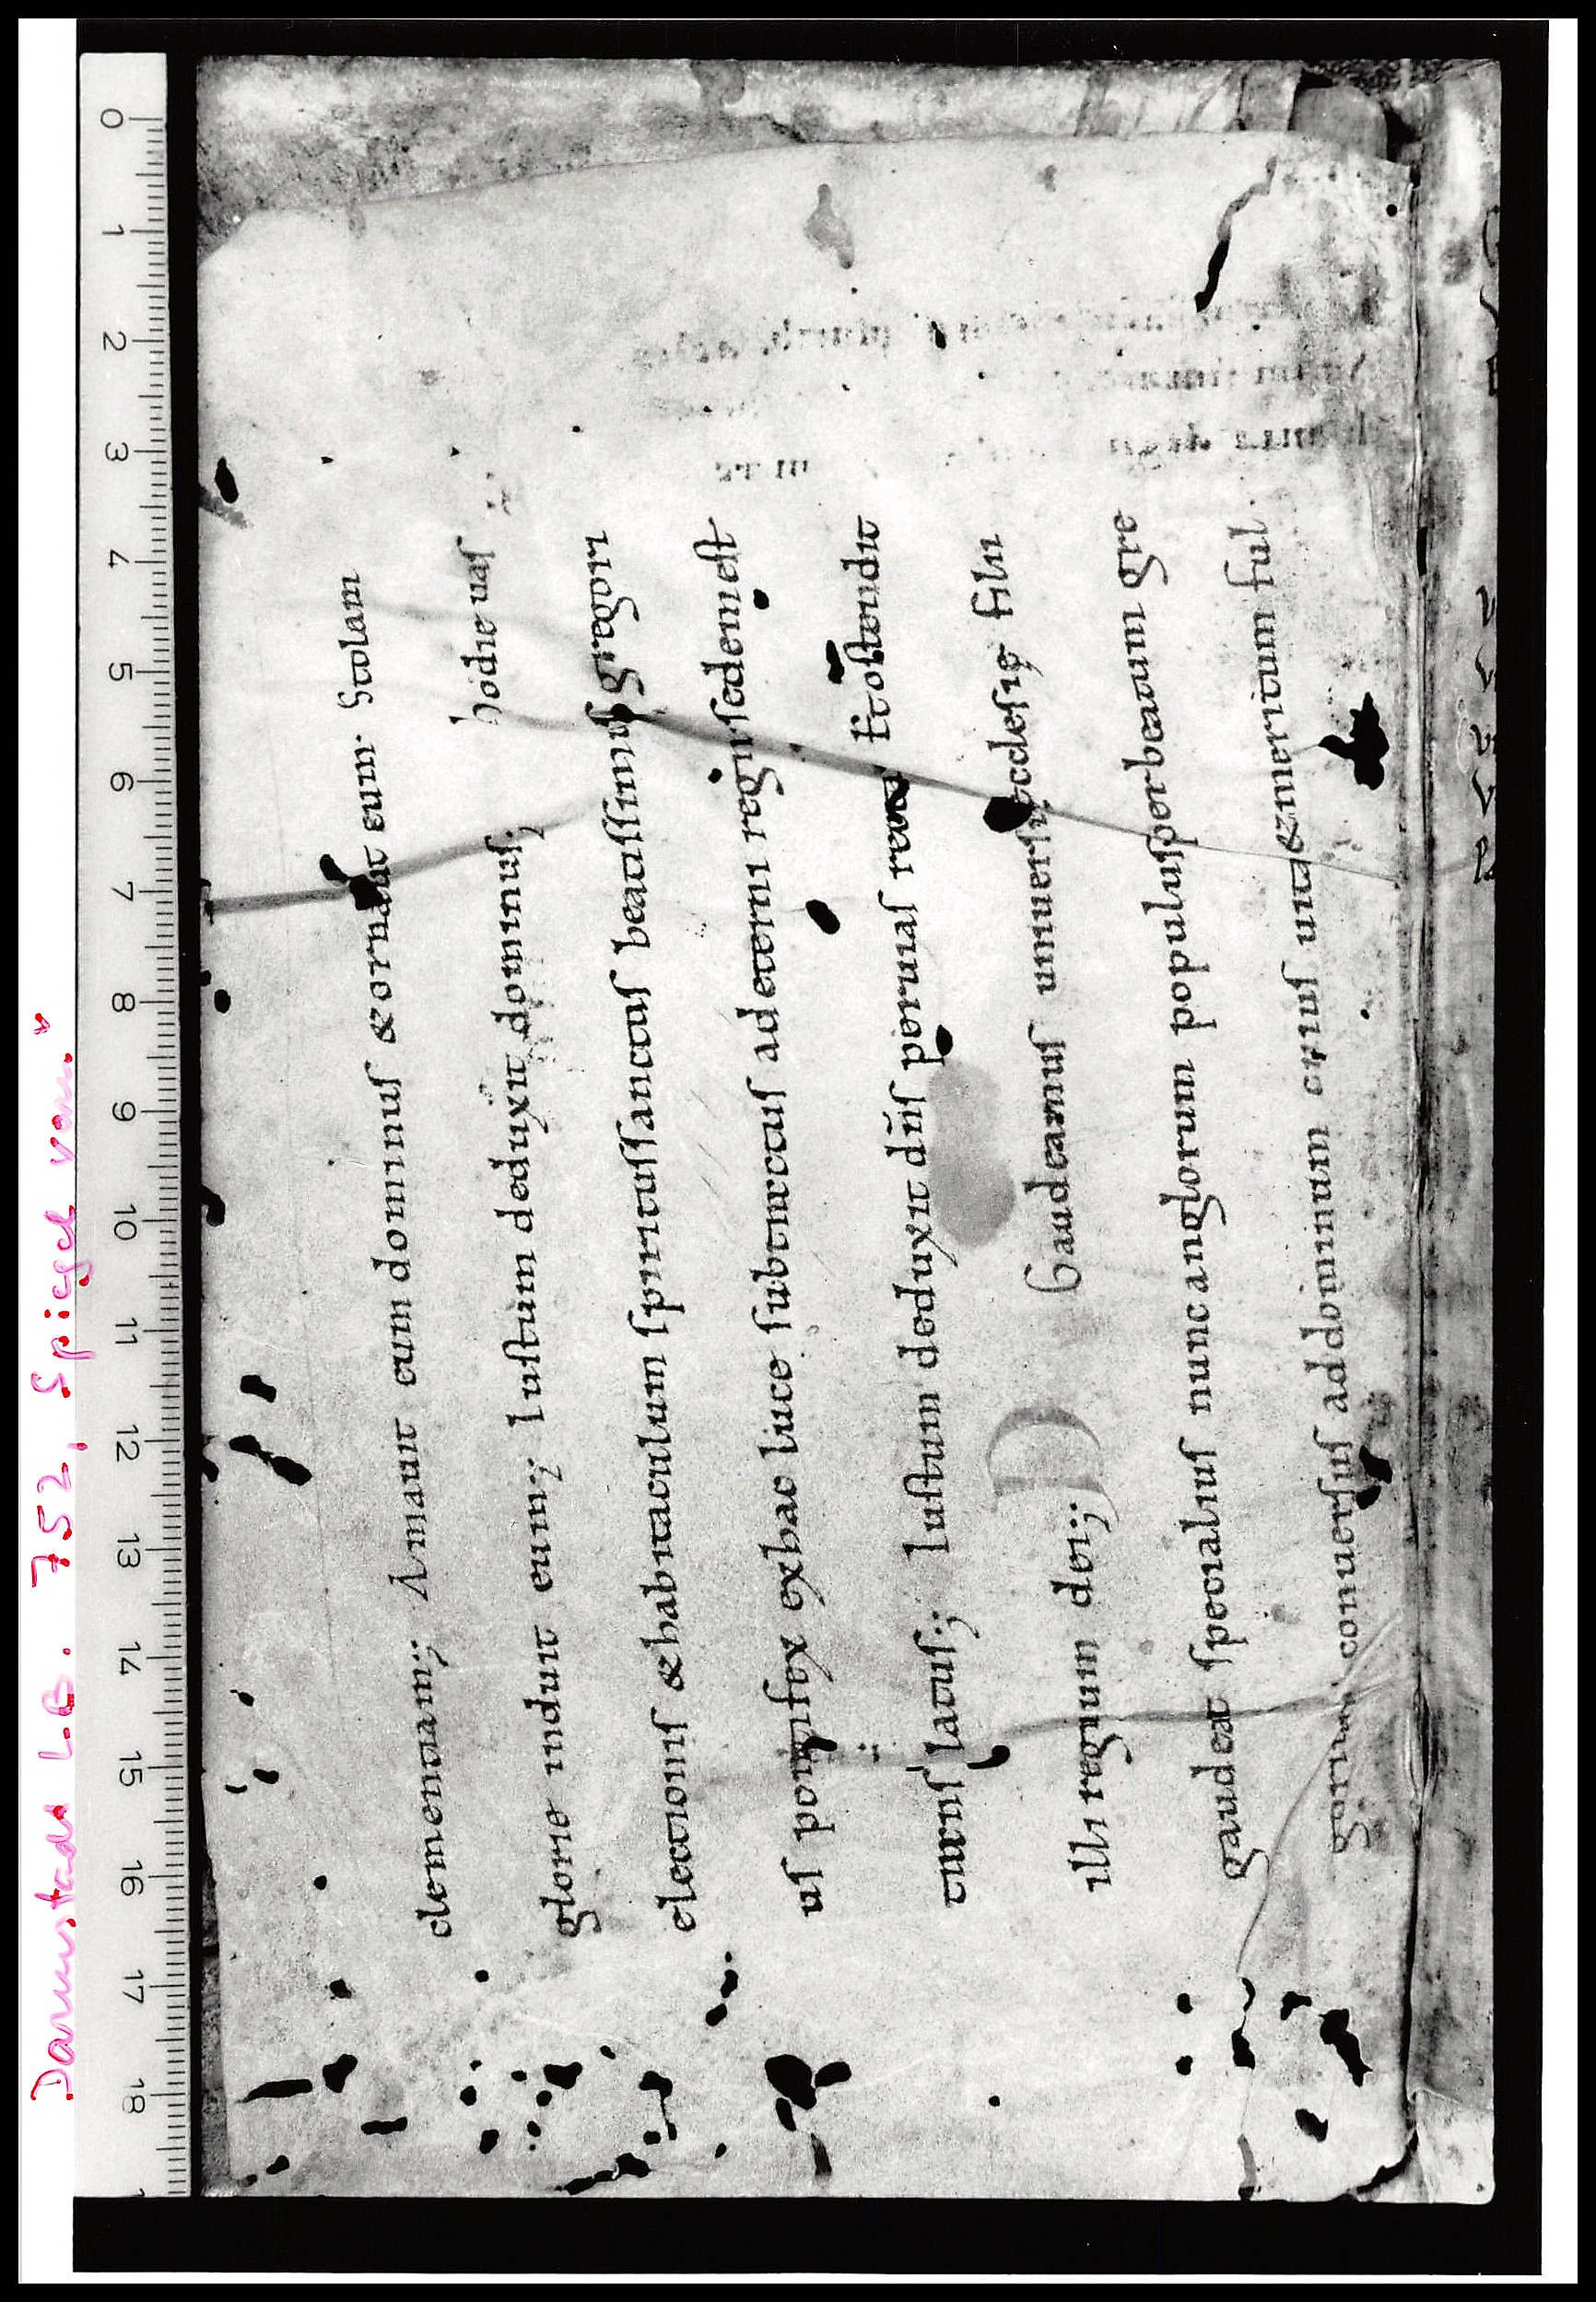 Darmstadt LB. 752, Spiegel vorn
clementiam; Amauit eum dominuſ & ornauit eum. Stolam
glorie induit eum; Iuſtum deduxit dominuſ; hodie uaſ
electioniſ & habitaculum ſpirituſ ſanctuſ beatiſſimuſ gregori
uſ pontifex ex hac luce ſubtractuſ ad eterni regiſ ſedem eſt
tranſlatuſ; Iuſtum deduxit dn̄ſ per uiaſ rectaſ Et oſtendit
illi regnum dei; Gaudeamuſ uniuerſi ęccleſię filii
gaudeat ſpecialiuſ nunc anglorum populuſ per beatum gre
gorium conuerſuſ ad dominum cuiuſ uita & meritum ful
0
1
2
3
4
5
6
7
8
9
10
11
12
13
14
15
16
17
18